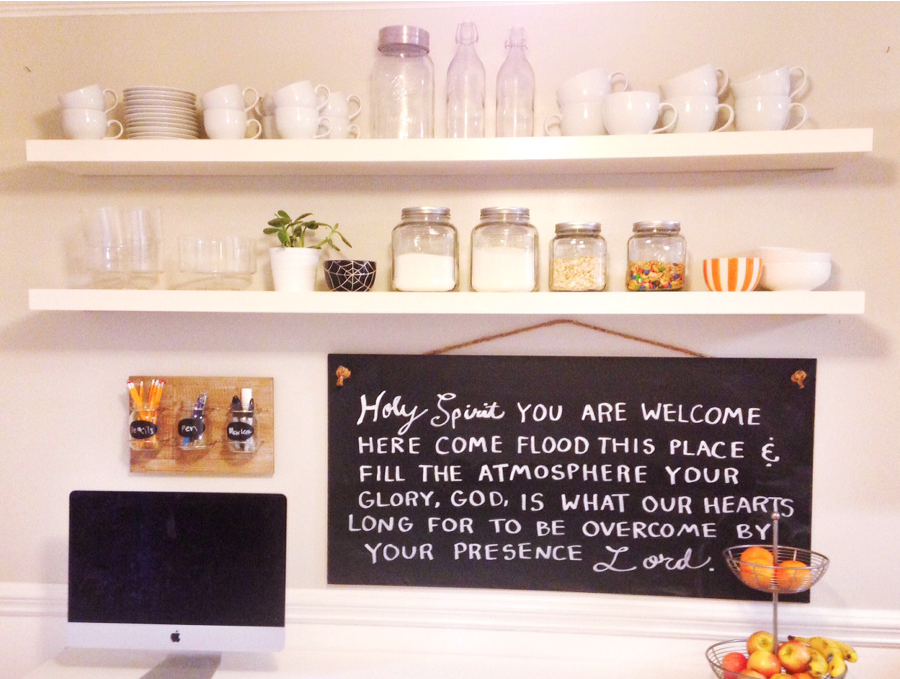 Pencils
Pen
Markers
Holy Spirit YOU ARE WELCOME
HERE COME FLOOD THIS PLACE &
FILL THE ATMOSPHERE YOUR
GLORY, GOD, IS WHAT OUR HEARTS
LONG FOR TO BE OVERCOME BY
YOUR PRESENCE Lord.